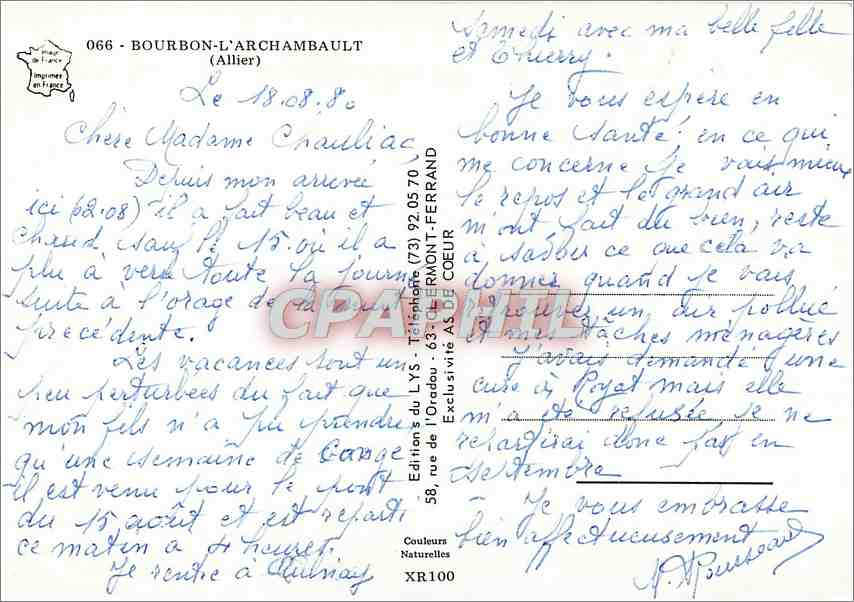 066 - BOURBON-L'ARCHAMBAULT
(Allier)
Imprimée
en France
Le 18.08.80
Chère Madame Chauliac,
Depuis mon arrivée
ici (02.08) il a fait beau et
chaud sauf le 15 où il a
plu à verse toute la journ
suite à l'orage de la nuit
précédente.
Les vacances sont un
peu perturbées du fait que
mon fils n'a pu prendre
qu'une semaine de congé
il est venu pour le pont
du 15 août et est reparti
ce matin à 4 heures.
Je rentre à Aulnay
Samedi avec ma belle fille
et Thierry.
Je vous espère en
bonne santé, en ce qui
me concerne je vais mieux
le repos et le grand air
m'ont fait du bien, reste
à savoir ce que cela va
donner quand je vais
retrouver un air pollué
et mes tâches ménagères
J'avais demandé une
cure à Royat mais elle
m'a été refusée je ne
repartirai donc pas en
septembre
Je vous embrasse
bien affectueusement
M. Rousseau
Editions du LYS - Téléphone (73) 92.05 70
58, rue de l'Oradou - 63 - CLERMONT-FERRAND
Exclusivité AS DE COEUR
Couleurs
Naturelles
XR100
CPAPHIL